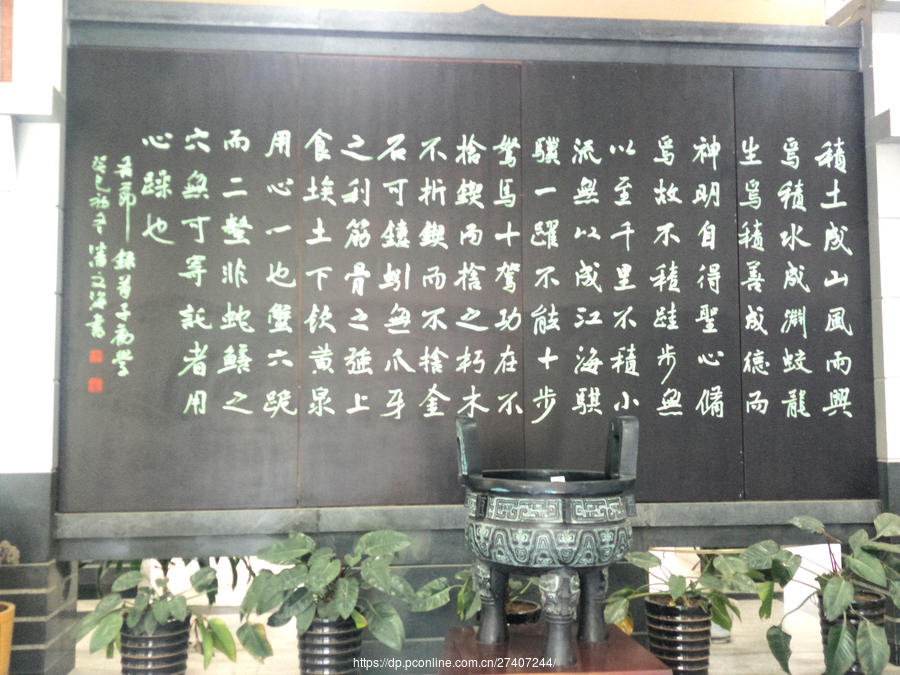 積土成山風雨興
焉積水成淵蛟龍
生焉積善成德而
神明自得聖心備
焉故不積跬步無
以至千里不積小
流無以成江海騏
驥一躍不能十步
駑馬十駕功在不
捨鍥而捨之朽木
不折鍥而不捨金
石可鏤蚓無爪牙
之利筋骨之强上
食埃土下飲黄泉
用心一也蟹六跪
而二螯非蛇鱔之
穴無可寄託者用
心躁也
右節錄荀子勸學
癸巳初冬潘文海書
https://dp.pconline.com.cn/27407244/